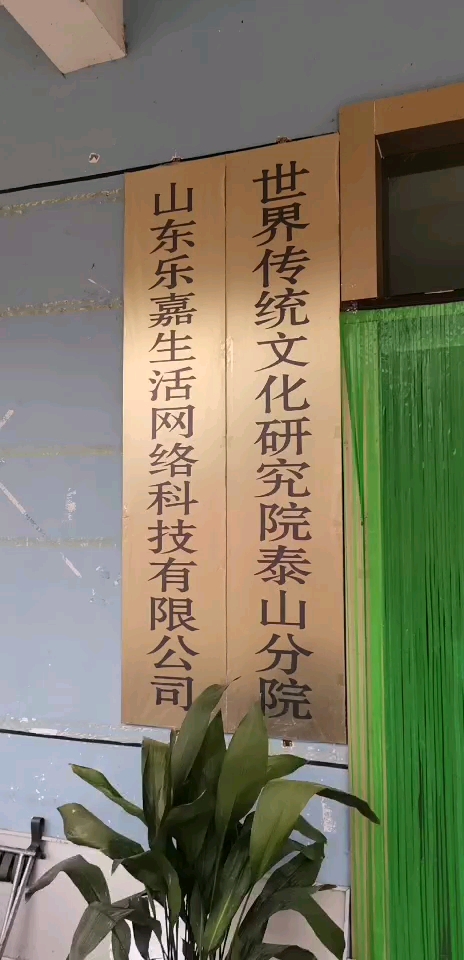 世界传统文化研究院泰山分院
山东乐嘉生活网络科技有限公司